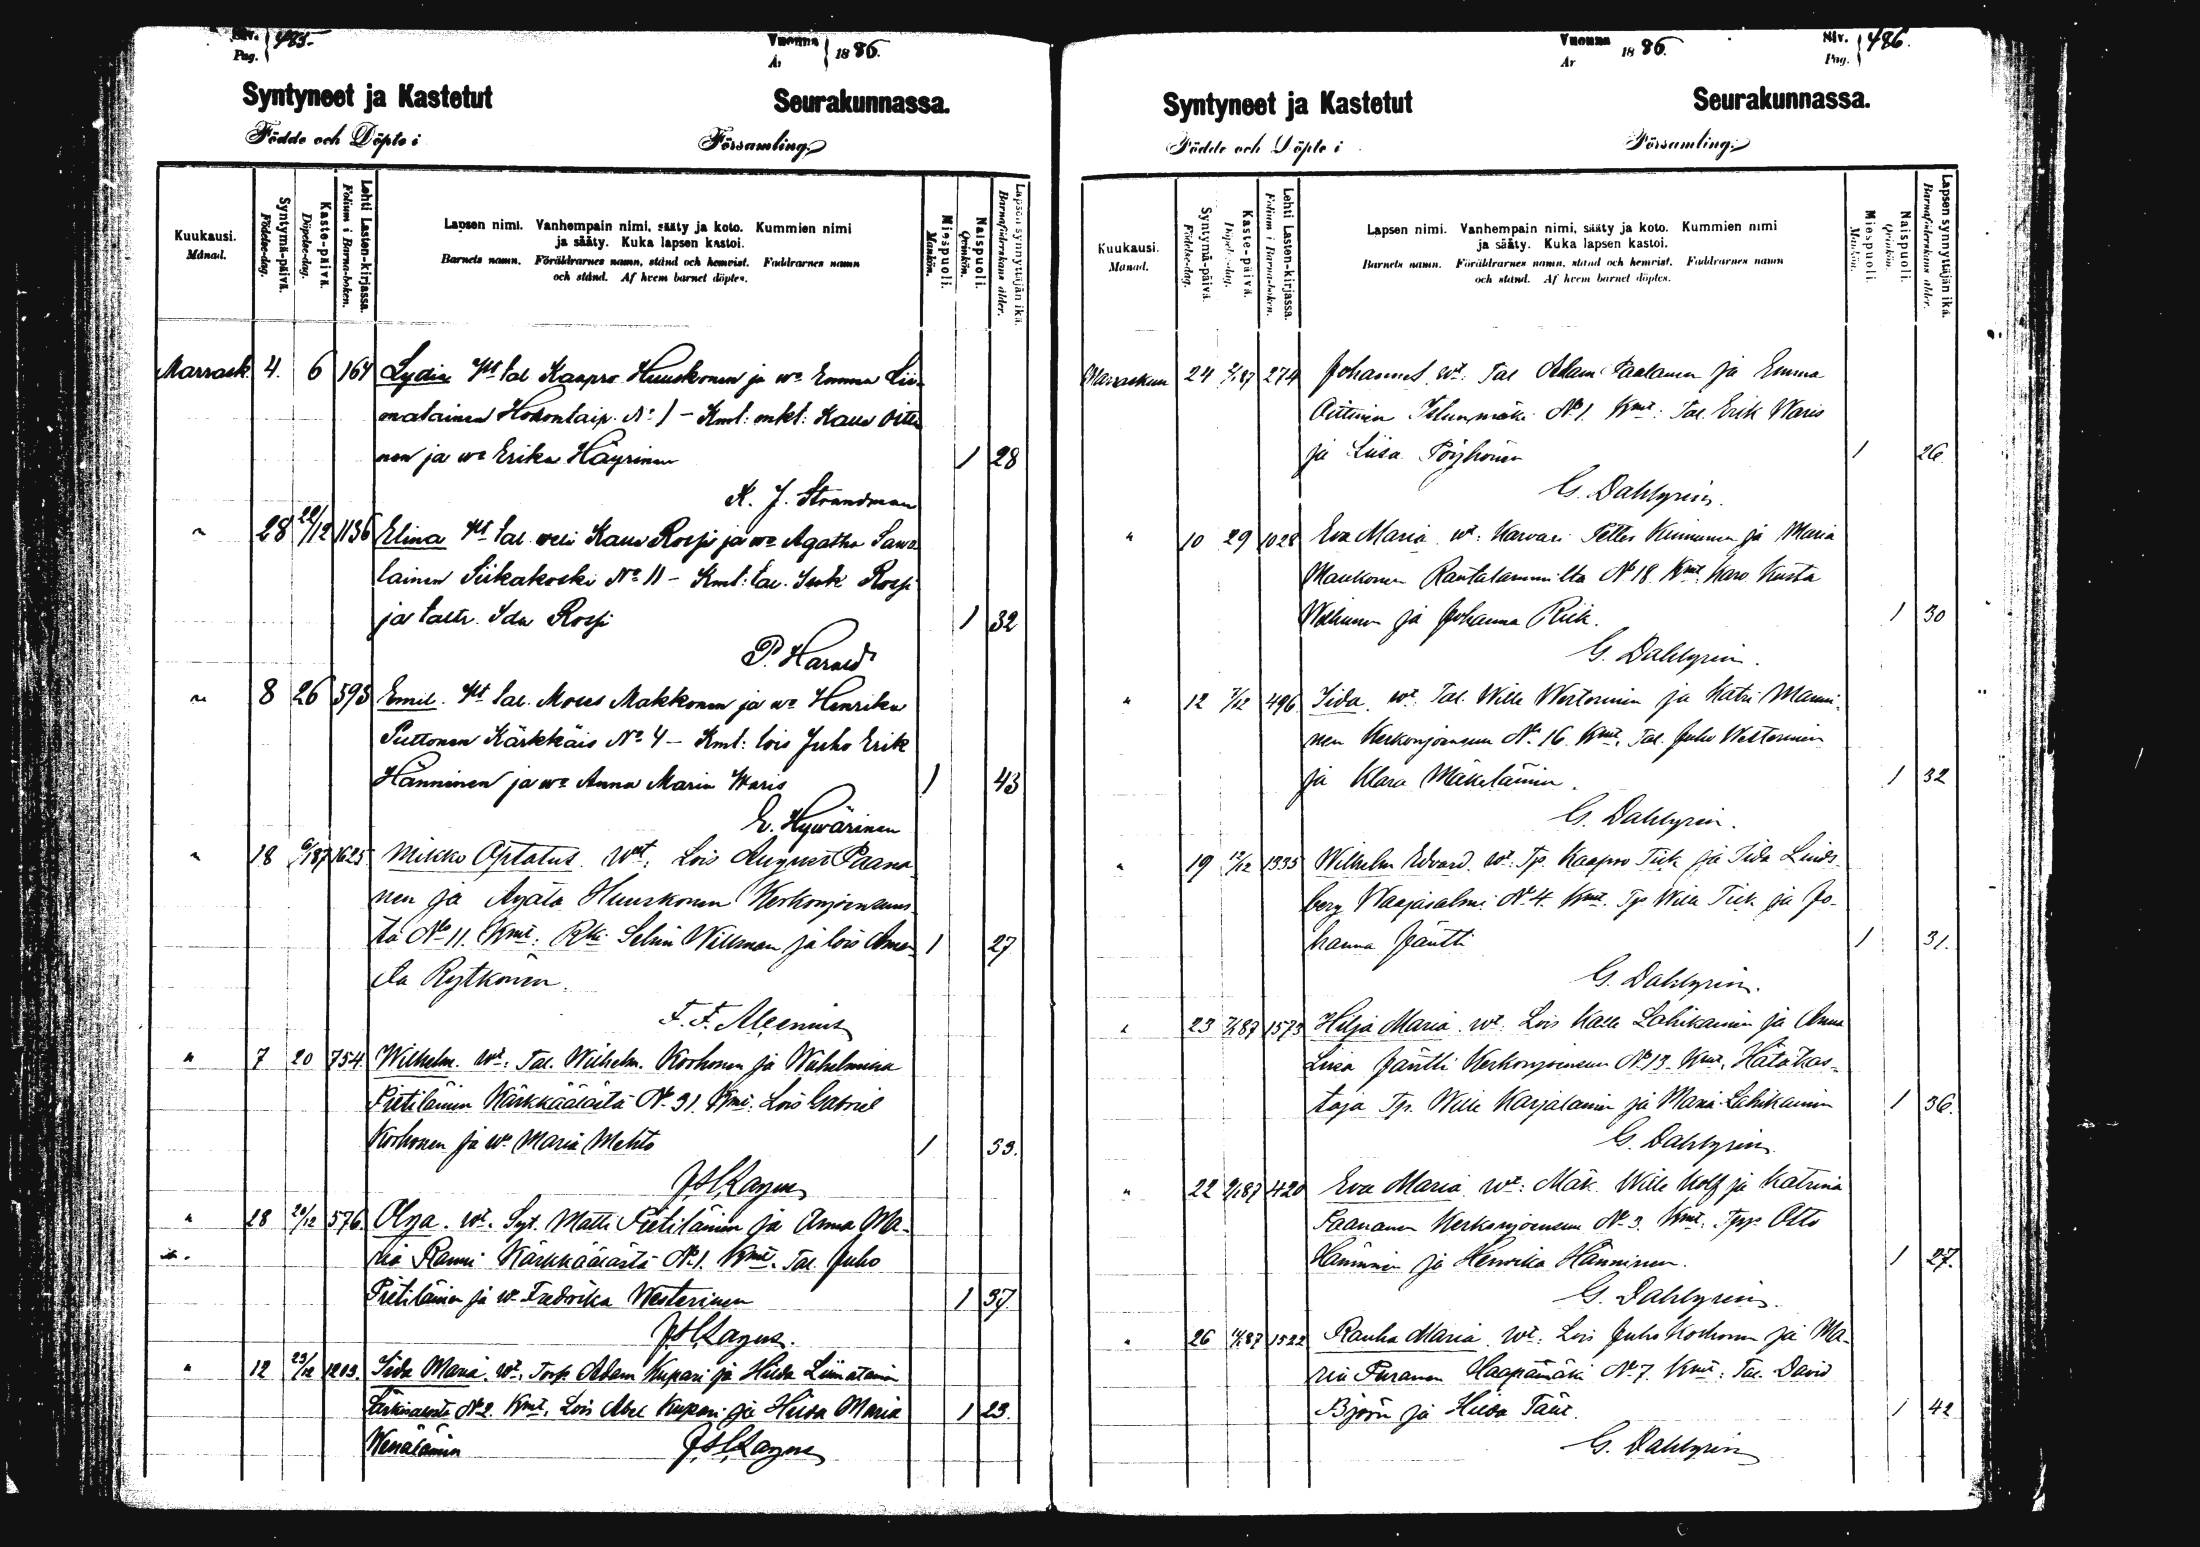 Siv. Pag. 485.
Vuonna År 1886.
Syntyneet ja Kastetut Seurakunnassa.
Födde och Döpte i Församling.
Kuukausi. Månad.
Syntymä-päivä. Födelse-dag.
Kaste-päivä. Döpelse-dag.
Lehti Lasten-kirjassa. Folium i Barna-boken.
Lapsen nimi. Vanhempain nimi, sääty ja koto. Kummien nimi
ja sääty. Kuka lapsen kastoi.
Barnets namn. Föräldrarnes namn, stånd och hemvist. Faddrarnes namn
och stånd. Af hvem barnet döptes.
Miespuoli. Mankön.
Naispuoli. Qvinkön.
Lapsen synnyttäjän ikä. Barnaföderskans ålder.
Marrask. 4. 6 164 Lydia tal Kaapro Huuskonen ja wo Emma Lii-
matainen No 1 – Kml: Oitti
nen ja wo Erika Häyrinen 1 28
K. J. Strandman
" 28 22/12 1136 Elina tal. weli Rossi ja wo Agatha Sawa
lainen Siikakoski No 11 – Kml: tal. Rossi
ja taltr. Ida Rossi 1 32
P. Harald
" 8 26 593 Emil. tal. Moses Makkonen ja wo Henrika
Puttonen Kärkkäis No 4 – Kml: lois Juho Erik
Hänninen ja wo Anna Maria Waris 1 43
E. Hywärinen
" 18 6/187 1625 Mikko Optatus. Wmt: Lois August Paana
nen ja Agata Huuskonen Kerkonjoensuus
ta No 11. Kmt: Selim Willman ja lois Aman
da Rytkönen. 1 27
F. F. Aleenius
" 7 20 754 Wilhelm. wt: Tal. Wilhelm. Korhonen ja Wilhelmina
Pietiläinen Kärkkäästä No 31. Kmt: Lois Gabriel
Korhonen ja wo Maria Mehto 1 33.
" 28 20/12 576. Olga. wt. Syt. Matti Pietiläinen ja Anna Ma-
ria Ranni Kärkkäästä No 1. Kmt. Tal. Juho
Pietiläinen ja wo Fredrika Westerinen 1 37.
" 12 23/12 1203. Iida Maria. wt. Torp. Adam Kupari ja Hilda Liimatainen
No 2. Kmt. Lois Abel Kupari ja Hilda Maria 1 23.
Wenäläinen
Siv. Pag. 486.
Vuonna År 1886.
Syntyneet ja Kastetut Seurakunnassa.
Födde och Döpte i Församling.
Kuukausi. Månad.
Syntymä-päivä. Födelse-dag.
Kaste-päivä. Döpelse-dag.
Lehti Lasten-kirjassa. Folium i Barna-boken.
Lapsen nimi. Vanhempain nimi, sääty ja koto. Kummien nimi
ja sääty. Kuka lapsen kastoi.
Barnets namn. Föräldrarnes namn, stånd och hemvist. Faddrarnes namn
och stånd. Af hvem barnet döptes.
Miespuoli. Mankön.
Naispuoli. Qvinkön.
Lapsen synnyttäjän ikä. Barnaföderskans ålder.
Marraskuu 24 274 Johannes wt: Tal Adam Paalanen ja Emma
Oittinen No 1. Kmt: Tal. Erik Waris
ja Liisa Pöyhönen 1 26
G. Dahlgrén.
" 10 29 1028 Eva Maria wt: Karvari Petter Kinnunen ja Maria
Manhonen Rautalammilta No 18. Kmt. Karv. Kusta
ja Johanna Riek. 1 30
G. Dahlgrén.
" 12 7/12 496 Iida. wt. Tal. Wille Westerinen ja Katri Manni-
nen Kerkonjoensuu No 16. Kmt. Tal. Juho Westerinen
ja Klara Mäkeläinen. 1 32
G. Dahlgrén.
" 19 12/12 1335 Wilhelm Edvard. wt: Tp. Kaapro Tiik ja Iida Linds-
berg Waajasalmi No 4. Kmt. Tp Wille Tiik ja Jo-
hanna Jäntti 1 31.
G. Dahlgrén.
" 23 1573 Hilja Maria wt. Lois Kalle Lahikainen ja Anna
Liisa Jäntti Kerkonjoensuu No 13. Kmt. Hätäkas-
taja Tp. Wille Karjalainen ja Maria Lahikainen 1 36.
G. Dahlgrén.
" 22 420 Eva Maria wt: Mäk. Wille Kolf ja Katrina
Paananen Kerkonjoensuu No 3. Kmt. Tpp. Otto
Hänninen ja Henrika Hänninen. 1 27.
G. Dahlgrén.
" 26 1522 Rauha Maria wt: Lois Juho Korhonen ja Ma-
ria Puranen Haapamäki No 7. Kmt: Tal. David
Björn ja Hilda Täät. 1 42
G. Dahlgrén